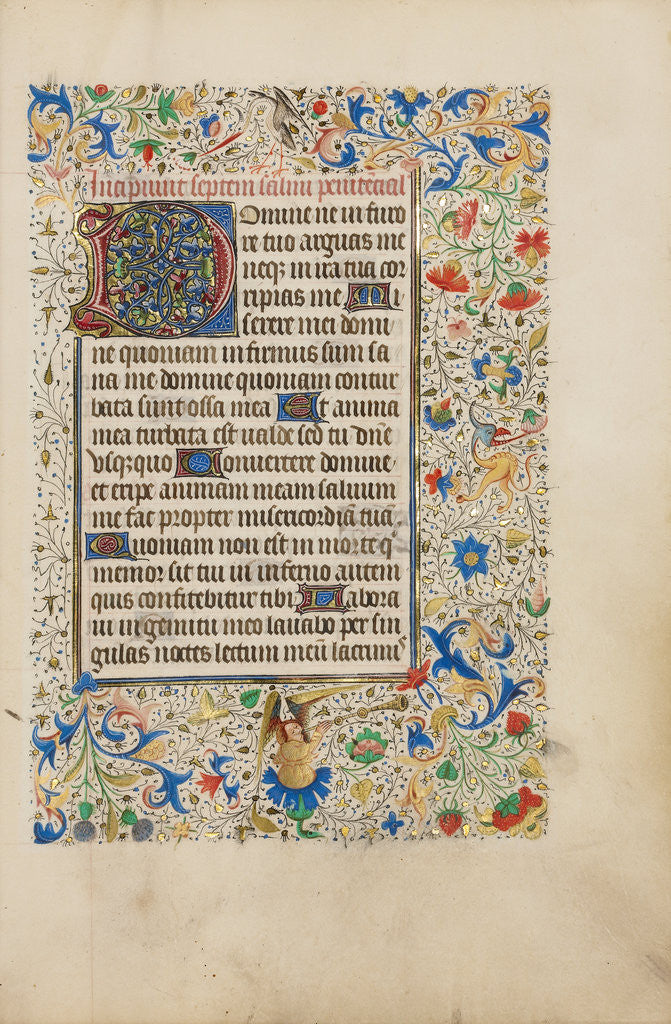 Incipiunt septem salmi penitecial
Domine ne in furo
re tuo arguas me
neqz in ira tua cor
ripias me Mi
serere mei domi
ne quoniam infirmus sum sa
na me domine quoniam contur
bata sunt ossa mea Et anima
mea turbata est ualde sed tu dñe
vsqzquo Conuertere domine
et eripe animam meam saluum
me fac propter misericordiã tuã
Quoniam non est in morte q
memor sit tui in inferno autem
quis confitebitur tibi Labora
ui in gemitu meo lauabo per sin
gulas noctes lectum meũ lacrimis